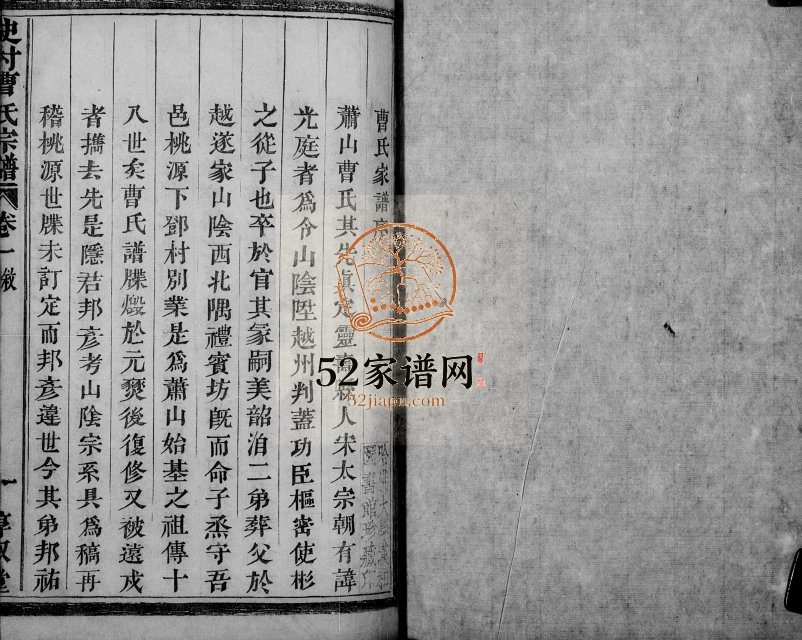 曹氏家譜序
蕭山曹氏其先真定靈壽人宋太宗朝有諱
光庭者爲令山陰陞越州判蓋功臣樞密使彬
之從子也卒於官其冢嗣美韶洎二弟葬父於
越遂家山陰西北隅禮賓坊既而命子烝守吾
邑桃源下鄧村別業是爲蕭山始基之祖傳十
八世矣曹氏譜牒燬於元燹後復修又被遠戍
者攜去先是隱君邦彥考山陰宗系具爲稿再
稽桃源世牒未訂定而邦彥違世今其弟邦祐
史村曹氏宗譜 卷一 敘 一 惇敘堂
52家谱网
52jiapu.com